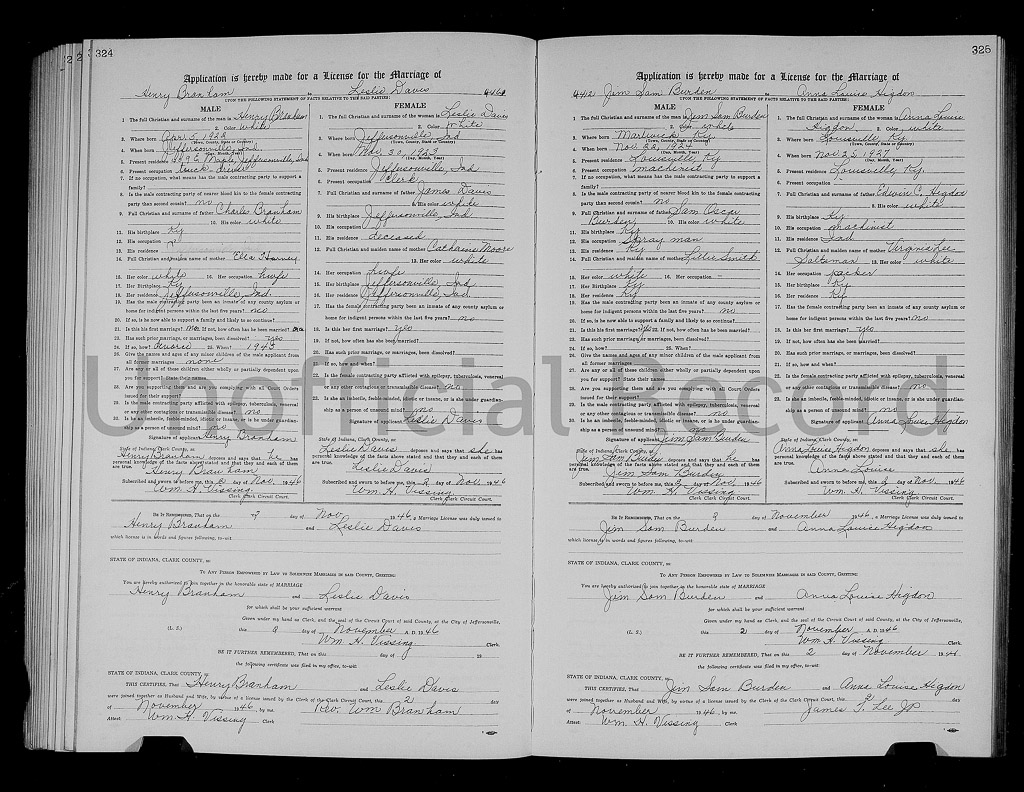 324
Application is hereby made for a License for the Marriage of
Henry Branham to Leslie Davis
UPON THE FOLLOWING STATEMENT OF FACTS RELATIVE TO THE SAID PARTIES:
MALE
1. The full Christian and surname of the man is Henry Branham
2. Color white
3. Where born
(Town, County, State or Country)
4. When born
(Day, Month, Year)
5. Present residence Maple, Jeffersonville, Ind
6. Present occupation truck driver
7. If no occupation, what means has the male contracting party to support a
family?
8. Is the male contracting party of nearer blood kin to the female contracting
party than second cousin? no
9. Full Christian and surname of father Charles Branham
10. His color white
11. His birthplace Ky
12. His occupation
13. His residence
14. Full Christian and maiden name of mother Ella Harvey
15. Her color white 16. Her occupation hwife
17. Her Birthplace Ky
18. Her residence Jeffersonville, Ind
19. Has the male contracting party been an inmate of any county asylum or
home for indigent persons within the last five years? no
20. If so, is he now able to support a family and likely to so continue?
21. Is this his first marriage? no 22. If not, how often has he been married?
23. Has such prior marriage, or marriages, been dissolved? yes
24. If so, how? divorce 25. When? 1943
26. Give the names and ages of any minor children of the male applicant from
all former marriages none
27. Are any or all of those children either wholly or partially dependent upon
you for support? State the names.
28. Are you supporting them and are you complying with all Court Orders
issued for their support?
29. Is the male contracting party afflicted with epilepsy, tuberculosis, venereal
or any other contagious or transmissible disease? no
30. Is he an imbecile, feeble-minded, idiotic or insane, or is he under guardian-
ship as a person of unsound mind? no
Signature of applicant Henry Branham
State of Indiana, Clark County, ss:
Henry Branham deposes and says that he has
personal knowledge of the facts above stated and that they and each of them
are true. Henry Branham
Subscribed and sworn to before me, this 2 day of Nov. 1946
Wm. H. Vissing
Clerk Clark Circuit Court.
FEMALE
1. The full Christian and surname of the woman is Leslie Davis
2. Color white
3. Where born Jeffersonville, Ind
(Town, County, State or Country)
4. When born
(Day, Month, Year)
5. Present residence Jeffersonville, Ind
6. Present occupation Clerk
7. Full Christian and surname of father James Davis
8. His color white
9. His birthplace Jeffersonville, Ind
10. His occupation
11. His residence deceased
12. Full Christian and maiden name of mother Catharine Moore
13. Her color white
14. Her occupation hwife
15. Her birthplace Jeffersonville, Ind
16. Her residence Jeffersonville, Ind
17. Has the female contracting party been an inmate of any county asylum or
home for indigent persons within the last five years? no
18. Is this her first marriage? yes
19. If not, how often has she been married?
20. Has such prior marriage, or marriages, been dissolved?
21. If so, how and when?
22. Is the female contracting party afflicted with epilepsy, tuberculosis, venereal
or any other contagious or transmissible disease? no
23. Is she an imbecile, feeble-minded, idiotic or insane, or is she under guardian-
ship as a person of unsound mind? no
Signature of applicant Leslie Davis
State of Indiana, Clark County, ss:
Leslie Davis deposes and says that she has
personal knowledge of the facts above stated and that they and each of them
are true. Leslie Davis
Subscribed and sworn to before me, this 2 day of Nov. 1946
Wm. H. Vissing
Clerk Clark Circuit Court.
BE IT REMEMBERED, That on the day of Nov 1946, a Marriage License was duly issued to
Henry Branham and Leslie Davis
which license is in words and figures following, to-wit:
STATE OF INDIANA, CLARK COUNTY, ss:
TO ANY PERSON EMPOWERED BY LAW TO SOLEMNIZE MARRIAGES IN SAID COUNTY, GREETING:
You are hereby authorized to join together in the honorable state of MARRIAGE
Henry Branham and Leslie Davis
for which shall be your sufficient warrant
Given under my hand as Clerk, and the seal of the Circuit Court of said County, at the City of Jeffersonville,
(L. S.) this day of November A. D. 1946
Wm. H. Vissing Clerk.
BE IT FURTHER REMEMBERED, That on this day of 19
the following certificate was filed in my office, to-wit:
STATE OF INDIANA, CLARK COUNTY, ss:
THIS CERTIFIES, That Henry Branham and Leslie Davis
were joined together as Husband and Wife, by virtue of a license issued by the Clerk of the Clark Circuit Court, this 2 day
of November 1946, by me. Rev. Wm Branham
Attest: Wm. H. Vissing Clerk
325
Application is hereby made for a License for the Marriage of
442 Jim Sam Burden to Anna Louise Higdon
UPON THE FOLLOWING STATEMENT OF FACTS RELATIVE TO THE SAID PARTIES:
MALE
1. The full Christian and surname of the man is Jim Sam Burden
2. Color white
3. Where born Ky
(Town, County, State or Country)
4. When born Nov. 20, 1924
(Day, Month, Year)
5. Present residence Louisville, Ky
6. Present occupation machinist
7. If no occupation, what means has the male contracting party to support a
family?
8. Is the male contracting party of nearer blood kin to the female contracting
party than second cousin? no
9. Full Christian and surname of father Sam Oscar
Burden 10. His color white
11. His birthplace Ky
12. His occupation Spray man
13. His residence Ky
14. Full Christian and maiden name of mother Lillie Smith
15. Her color white 16. Her occupation -
17. Her Birthplace Ky
18. Her residence Ky
19. Has the male contracting party been an inmate of any county asylum or
home for indigent persons within the last five years? no
20. If so, is he now able to support a family and likely to so continue?
21. Is this his first marriage? yes 22. If not, how often has he been married?
23. Has such prior marriage, or marriages, been dissolved?
24. If so, how? 25. When?
26. Give the names and ages of any minor children of the male applicant from
all former marriages
27. Are any or all of those children either wholly or partially dependent upon
you for support? State the names.
28. Are you supporting them and are you complying with all Court Orders
issued for their support?
29. Is the male contracting party afflicted with epilepsy, tuberculosis, venereal
or any other contagious or transmissible disease? no
30. Is he an imbecile, feeble-minded, idiotic or insane, or is he under guardian-
ship as a person of unsound mind? no
Signature of applicant Jim Sam Burden
State of Indiana, Clark County, ss:
Jim Sam Burden deposes and says that he has
personal knowledge of the facts above stated and that they and each of them
are true. Jim Sam Burden
Subscribed and sworn to before me, this 2 day of Nov. 1946
Wm. H. Vissing
Clerk Clark Circuit Court.
FEMALE
1. The full Christian and surname of the woman is Anna Louise
Higdon 2. Color white
3. Where born Louisville, Ky
(Town, County, State or Country)
4. When born Nov 23 1927
(Day, Month, Year)
5. Present residence Louisville, Ky.
6. Present occupation
7. Full Christian and surname of father Edwin C. Higdon
8. His color white
9. His birthplace Ky
10. His occupation machinist
11. His residence Ind
12. Full Christian and maiden name of mother Virginia Lee
Saltsman 13. Her color white
14. Her occupation packer
15. Her birthplace Ky
16. Her residence Ky
17. Has the female contracting party been an inmate of any county asylum or
home for indigent persons within the last five years? no
18. Is this her first marriage? yes
19. If not, how often has she been married?
20. Has such prior marriage, or marriages, been dissolved?
21. If so, how and when?
22. Is the female contracting party afflicted with epilepsy, tuberculosis, venereal
or any other contagious or transmissible disease? no
23. Is she an imbecile, feeble-minded, idiotic or insane, or is she under guardian-
ship as a person of unsound mind? no
Signature of applicant Anna Louise Higdon
State of Indiana, Clark County, ss:
Anna Louise Higdon deposes and says that she has
personal knowledge of the facts above stated and that they and each of them
are true. Anna Louise
Subscribed and sworn to before me, this 2 day of Nov. 1946
Wm. H. Vissing
Clerk Clark Circuit Court.
BE IT REMEMBERED, That on the 2 day of November 1946, a Marriage License was duly issued to
Jim Sam Burden and Anna Louise Higdon
which license is in words and figures following, to-wit:
STATE OF INDIANA, CLARK COUNTY, ss:
TO ANY PERSON EMPOWERED BY LAW TO SOLEMNIZE MARRIAGES IN SAID COUNTY, GREETING:
You are hereby authorized to join together in the honorable state of MARRIAGE
Jim Sam Burden and Anna Louise Higdon
for which shall be your sufficient warrant
Given under my hand as Clerk, and the seal of the Circuit Court of said County, at the City of Jeffersonville,
(L. S.) this 2 day of November A. D. 1946
Wm. H. Vissing Clerk.
BE IT FURTHER REMEMBERED, That on this 2 day of November 1946
the following certificate was filed in my office, to-wit:
STATE OF INDIANA, CLARK COUNTY, ss:
THIS CERTIFIES, That Jim Sam Burden and Anna Louise Higdon
were joined together as Husband and Wife, by virtue of a license issued by the Clerk of the Clark Circuit Court, this 2 day
of November 1946, by me. James T. Lee JP
Attest: Wm. H. Vissing Clerk
Unofficial Record